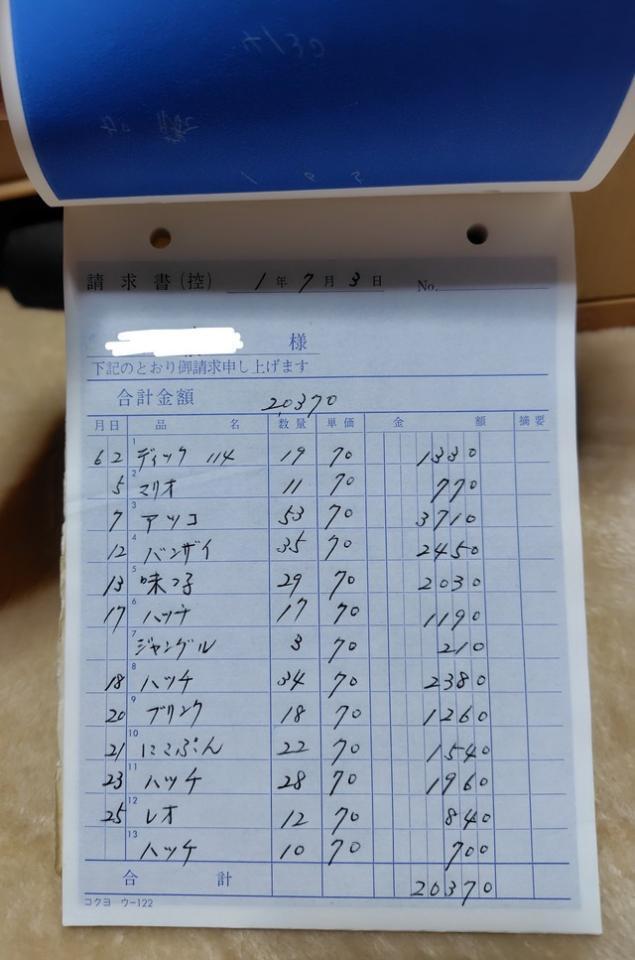 請求書(控) 1年7月3日 No.
様
下記のとおり御請求申し上げます
合計金額 20370
月日 品名 数量 単価 金額 摘要
6 2 1 ディック 114 19 70 1330
5 2 マリオ 11 70 770
7 3 アツコ 53 70 3710
12 4 バンザイ 35 70 2450
13 5 味つ子 29 70 2030
17 6 ハッチ 17 70 1190
7 ジャングル 3 70 210
18 8 ハッチ 34 70 2380
20 9 ブリンク 18 70 1260
21 10 にこぷん 22 70 1540
23 11 ハッチ 28 70 1960
25 12 レオ 12 70 840
13 ハッチ 10 70 700
合計 20370
コクヨ ウ-122